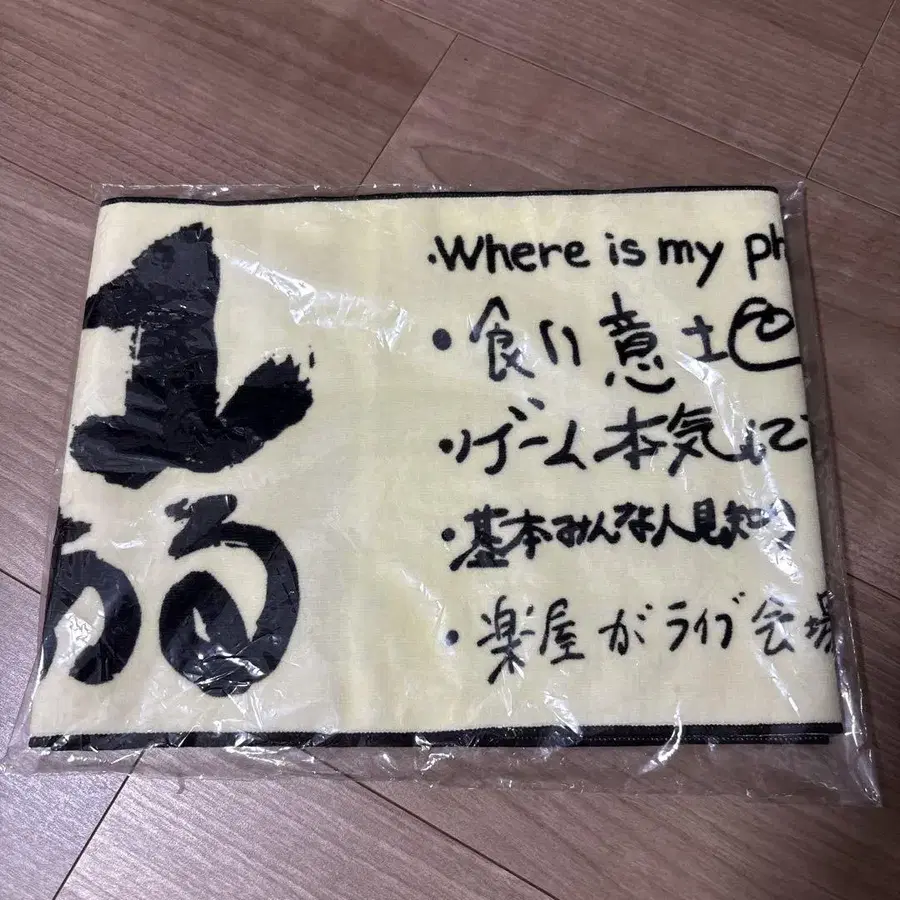 .Where is my ph
・食い意土也
・ゲーム本気に
・基本みんな人見知り
・楽屋がライブ会場